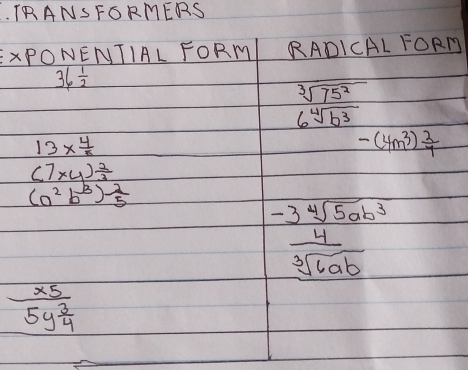 . TRANSFORMERS
EXPONENTIAL FORM | RADICAL FORM
36 1/2
∛75²
6∜b³
-(4m³) 3/4
13x 4/5
(7xy) 2/3
(a² b³)- 2/5
-3 ∜5ab³
4/∛6ab
x5/5y 3/4